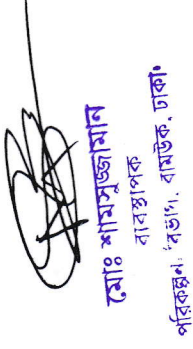 মোঃ শামসুজ্জামান
ব্যবস্থাপক
পরিকল্পনা বিভাগ, বামউক, ঢাকা।